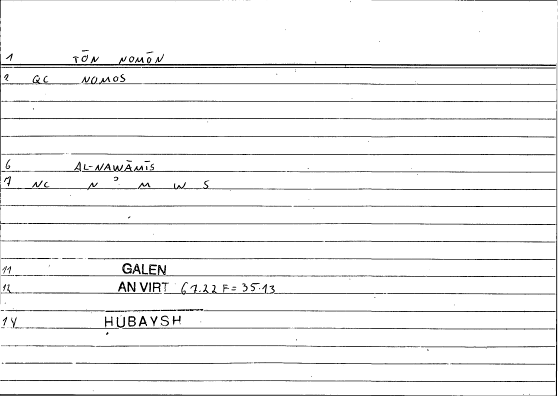 1 TŌN NOMŌN
2 QC NOMOS
6 AL-NAWĀMĪS
7 NC N ʾ M W S
11 GALEN
12 AN VIRT 61.22 F = 35.13
14 HUBAYSH